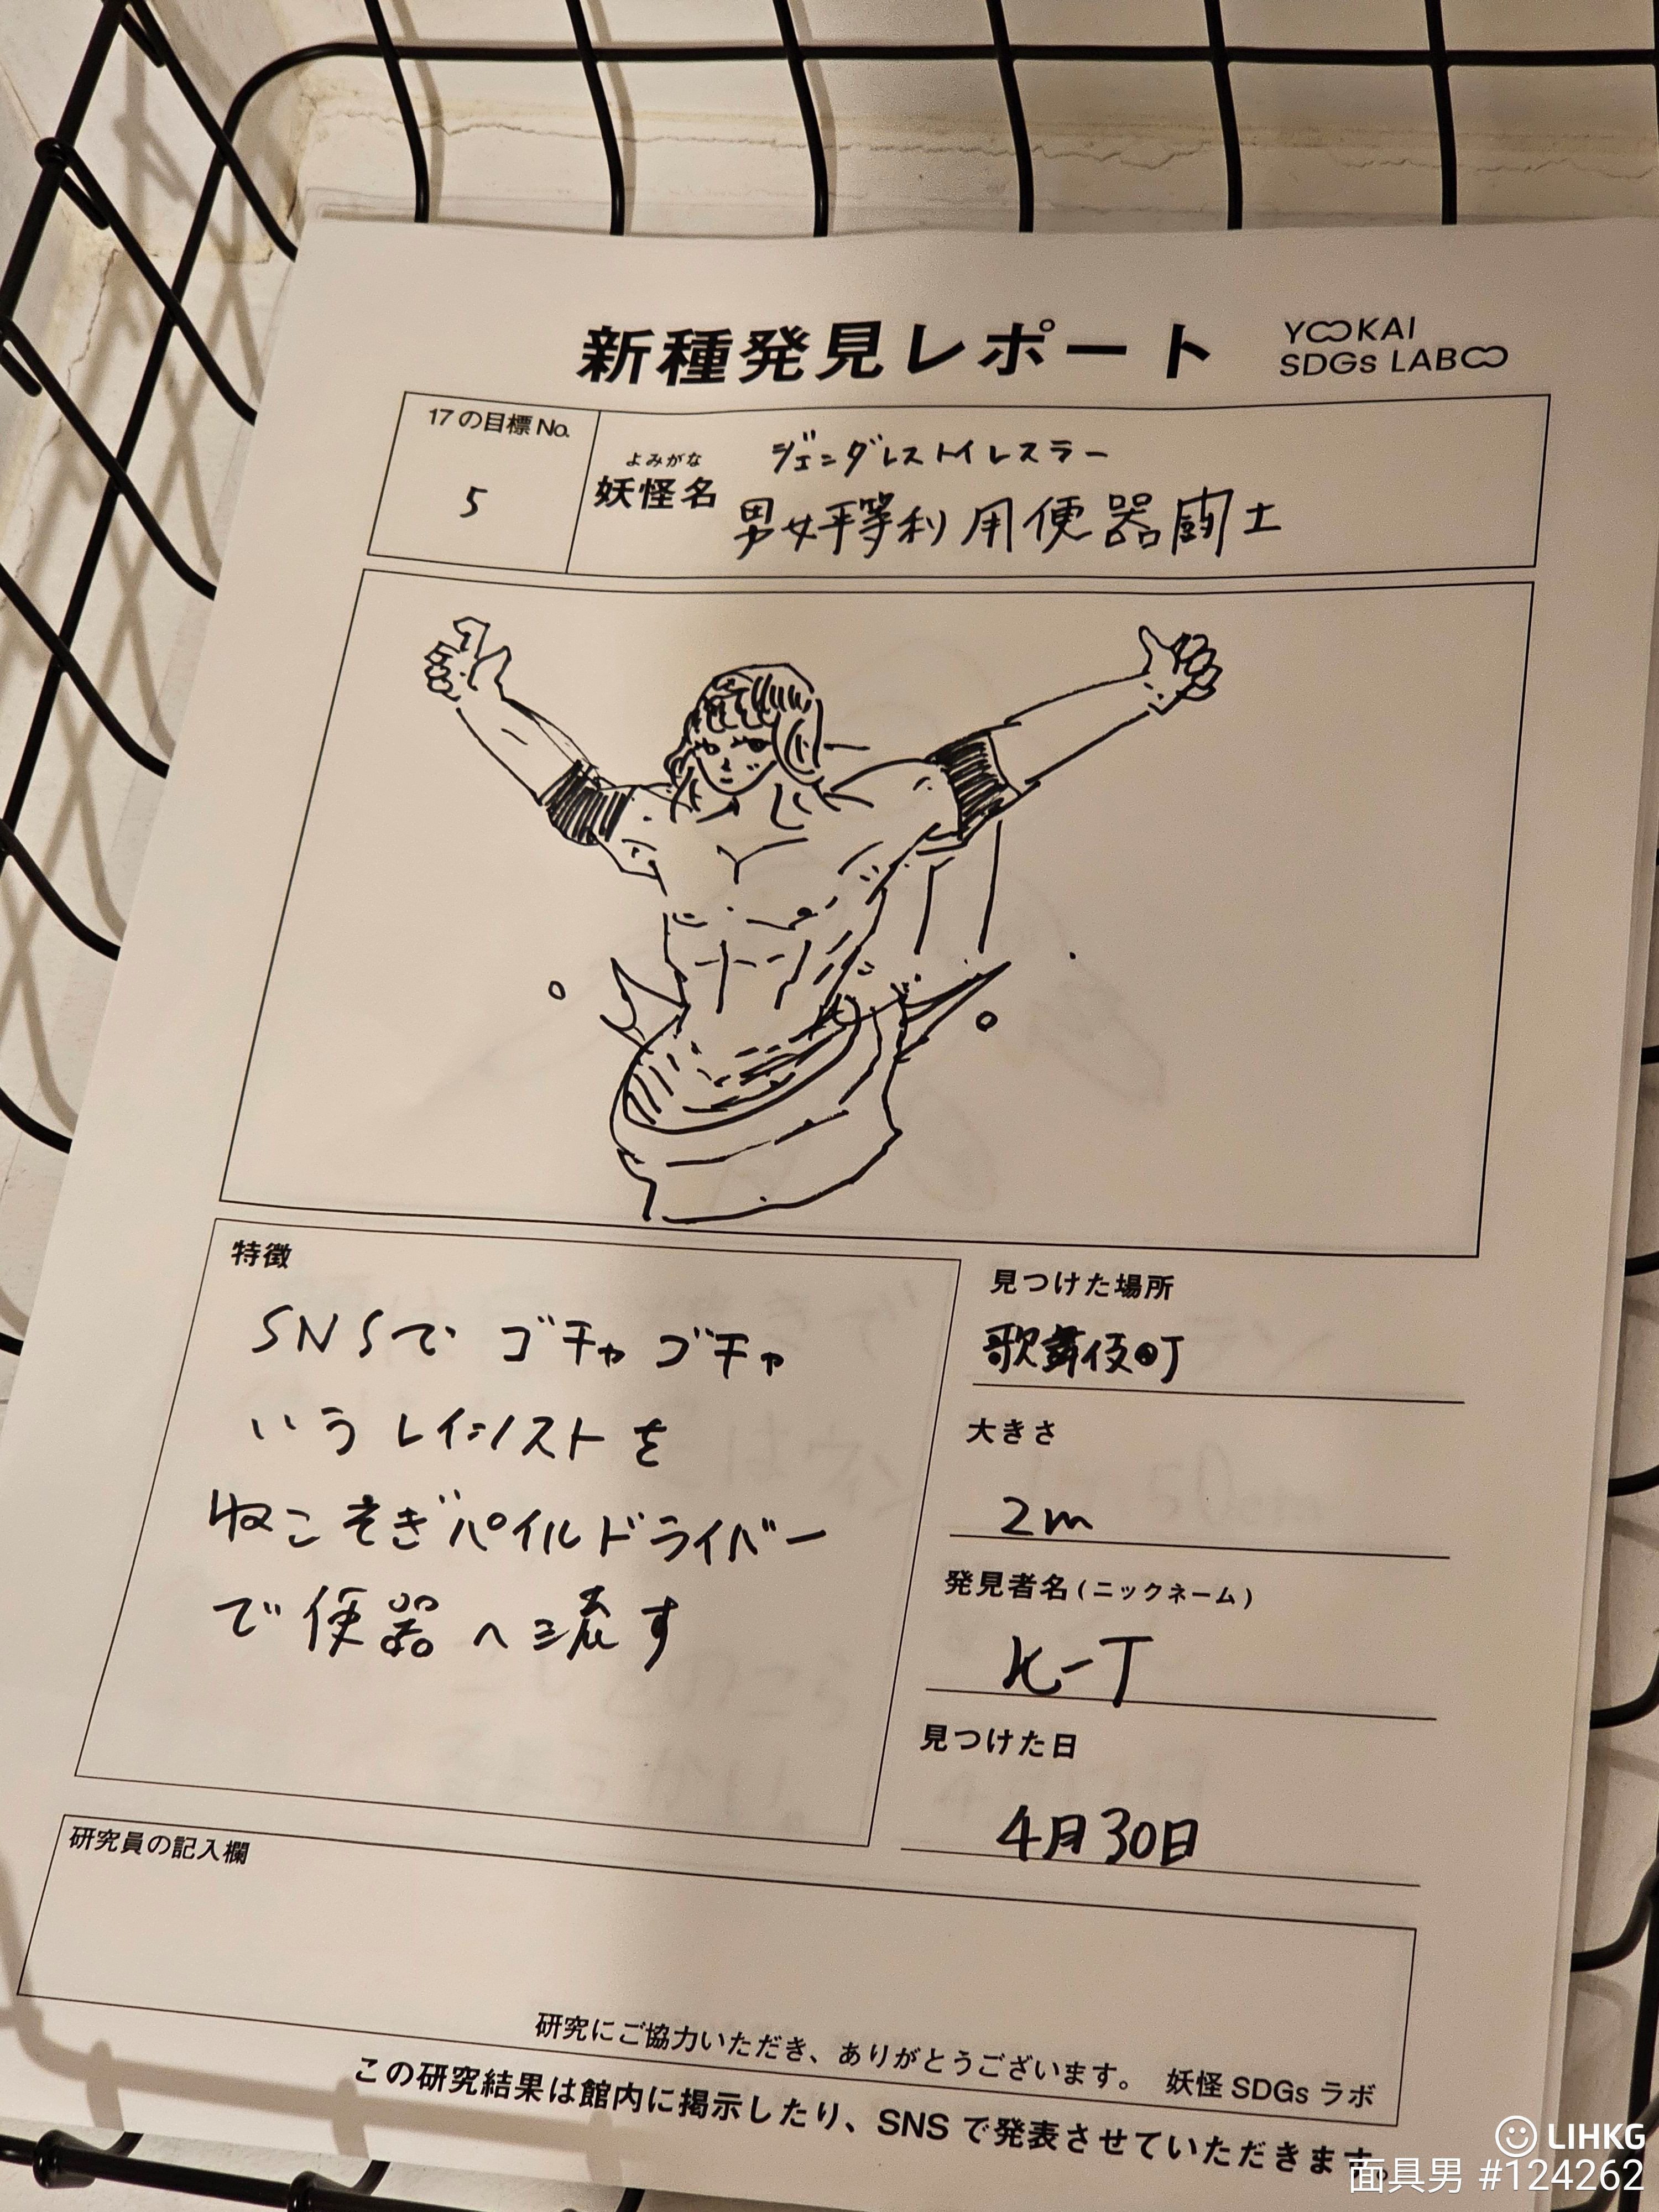 新種発見レポート
YOOKAI
SDGs LABOO
17の目標No.
5
よみがな
ジェンダレストイレスラー
妖怪名
男女平等利用便器闘士
特徴
SNSで ゴチャゴチャ
いう レイシストを
ねこそぎパイルドライバー
で便器へ流す
見つけた場所
歌舞伎町
大きさ
2m
発見者名(ニックネーム)
K-T
見つけた日
4月30日
研究員の記入欄
研究にご協力いただき、ありがとうございます。 妖怪SDGsラボ
この研究結果は館内に掲示したり、SNSで発表させていただきます。
LIHKG
面具男 #124262